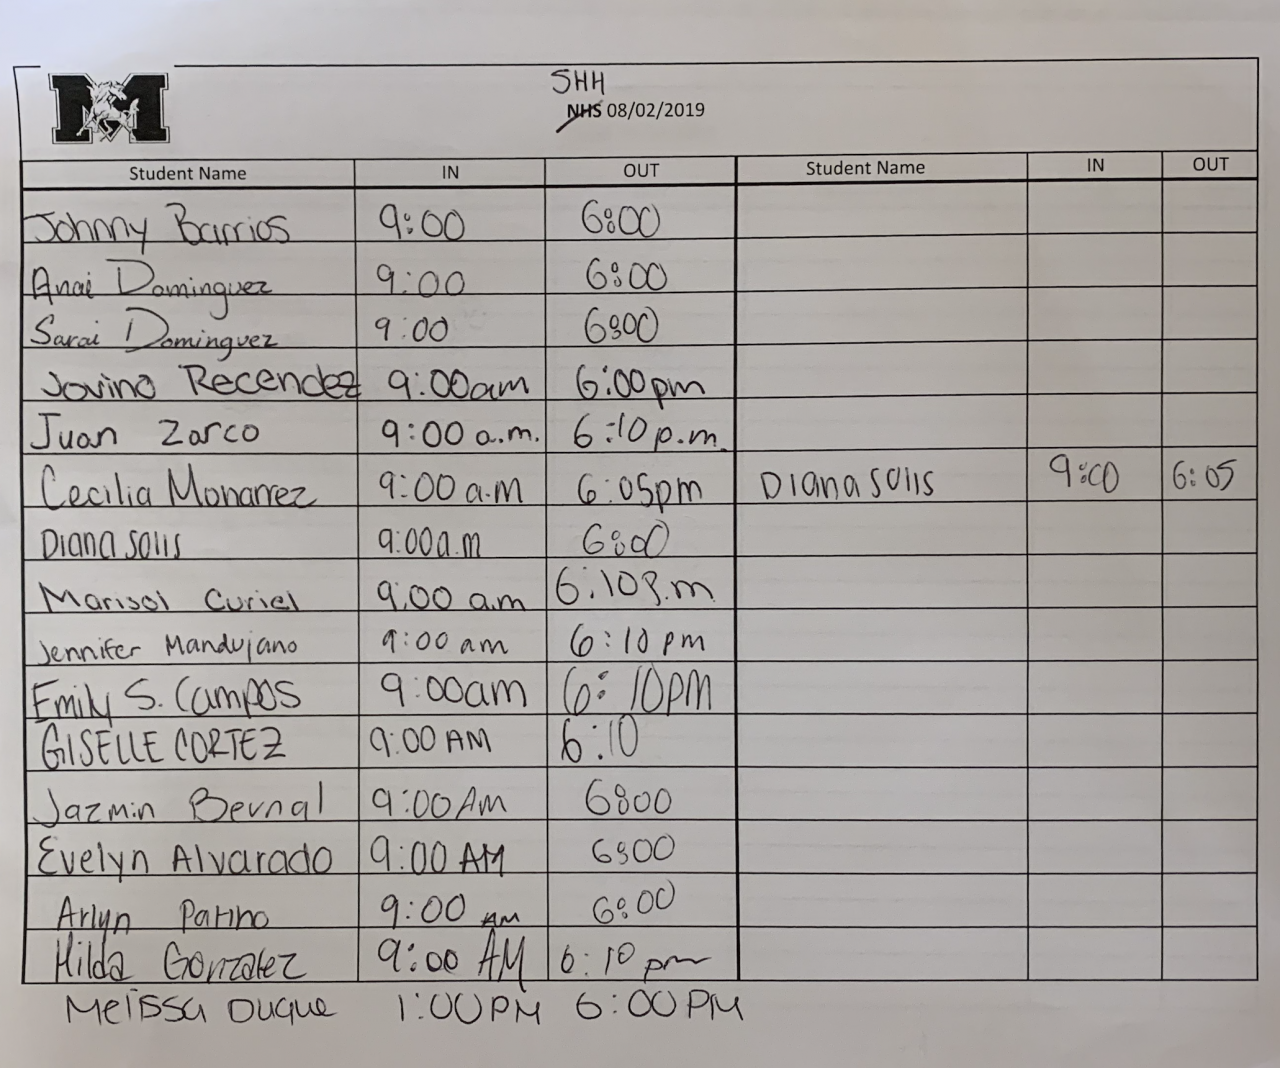 M
SHH
NHS 08/02/2019
Student Name IN OUT Student Name IN OUT
Johnny Barrios 9:00 6:00
Anai Dominguez 9:00 6:00
Sarai Dominguez 9:00 6:00
Jovino Recendez 9:00am 6:00pm
Juan Zarco 9:00 a.m. 6:10 p.m.
Cecilia Monarrez 9:00 a.m 6:05pm Diana solis 9:00 6:05
Diana solis 9:00a.m 6:00
Marisol Curiel 9:00 a.m 6:10p.m
Jennifer Mandujano 9:00 am 6:10 pm
Emily S. Campos 9:00am 6:10PM
GISELLE CORTEZ 9:00 AM 6:10
Jazmin Bernal 9:00 Am 6:00
Evelyn Alvarado 9:00 AM 6:00
Arlyn Patino 9:00 AM 6:00
Hilda Gonzalez 9:00 AM 6:10 pm
Melissa Duque 1:00PM 6:00PM